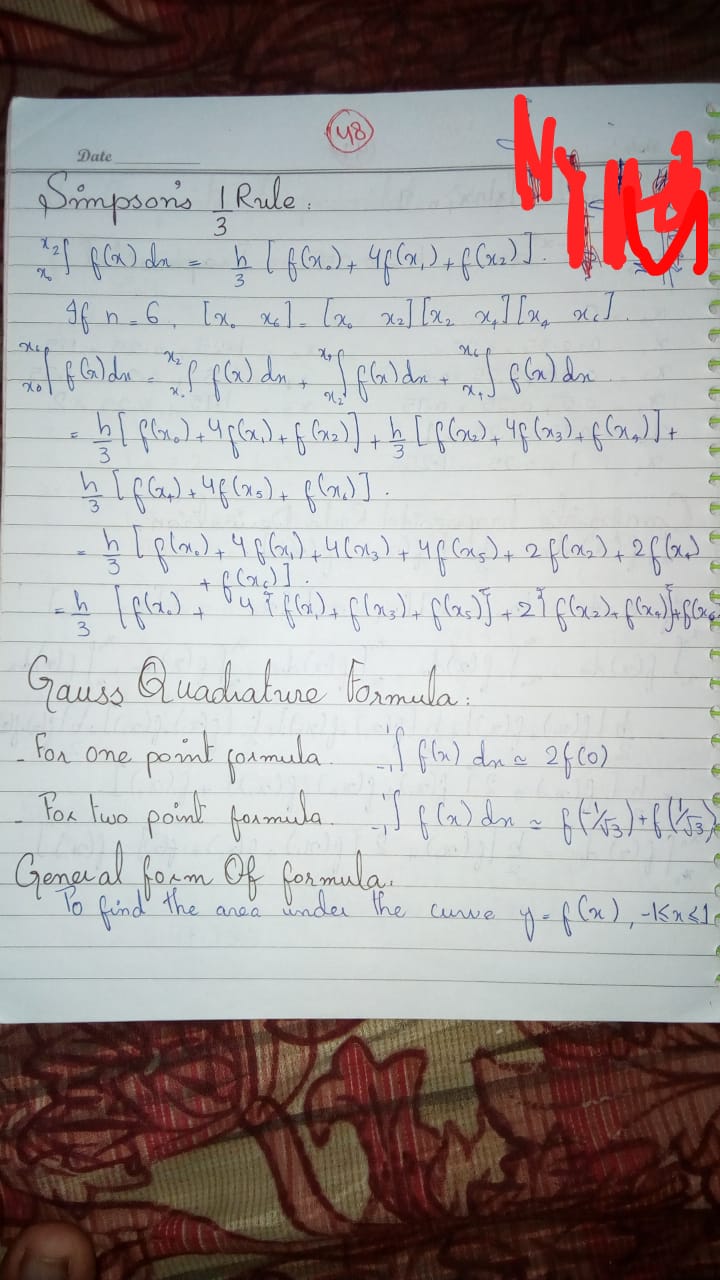 48
Date
Simpson's 1/3 Rule:
x₀∫x₂ f(x) dx = h/3 [f(x₀) + 4f(x₁) + f(x₂)].
If n = 6, [x₀ x₆] = [x₀ x₂][x₂ x₄][x₄ x₆].
x₀∫x₆ f(x) dx = x₀∫x₂ f(x) dx + x₂∫x₄ f(x) dx + x₄∫x₆ f(x) dx
= h/3 [f(x₀) + 4f(x₁) + f(x₂)] + h/3 [f(x₂) + 4f(x₃) + f(x₄)] +
h/3 [f(x₄) + 4f(x₅) + f(x₆)].
= h/3 [f(x₀) + 4f(x₁) + 4(x₃) + 4f(x₅) + 2f(x₂) + 2f(x₄)
+ f(x₆)].
= h/3 [f(x₀) + 4{f(x₁) + f(x₃) + f(x₅)} + 2{f(x₂) + f(x₄)} + f(x₆
Gauss Quadrature Formula:
- For one point formula. -1∫1 f(x) dx ≃ 2f(0)
- For two point formula. -1∫1 f(x) dx ≃ f(-1/√3) + f(1/√3)
General form Of formula.
To find the area under the curve y = f(x), -1≤x≤1